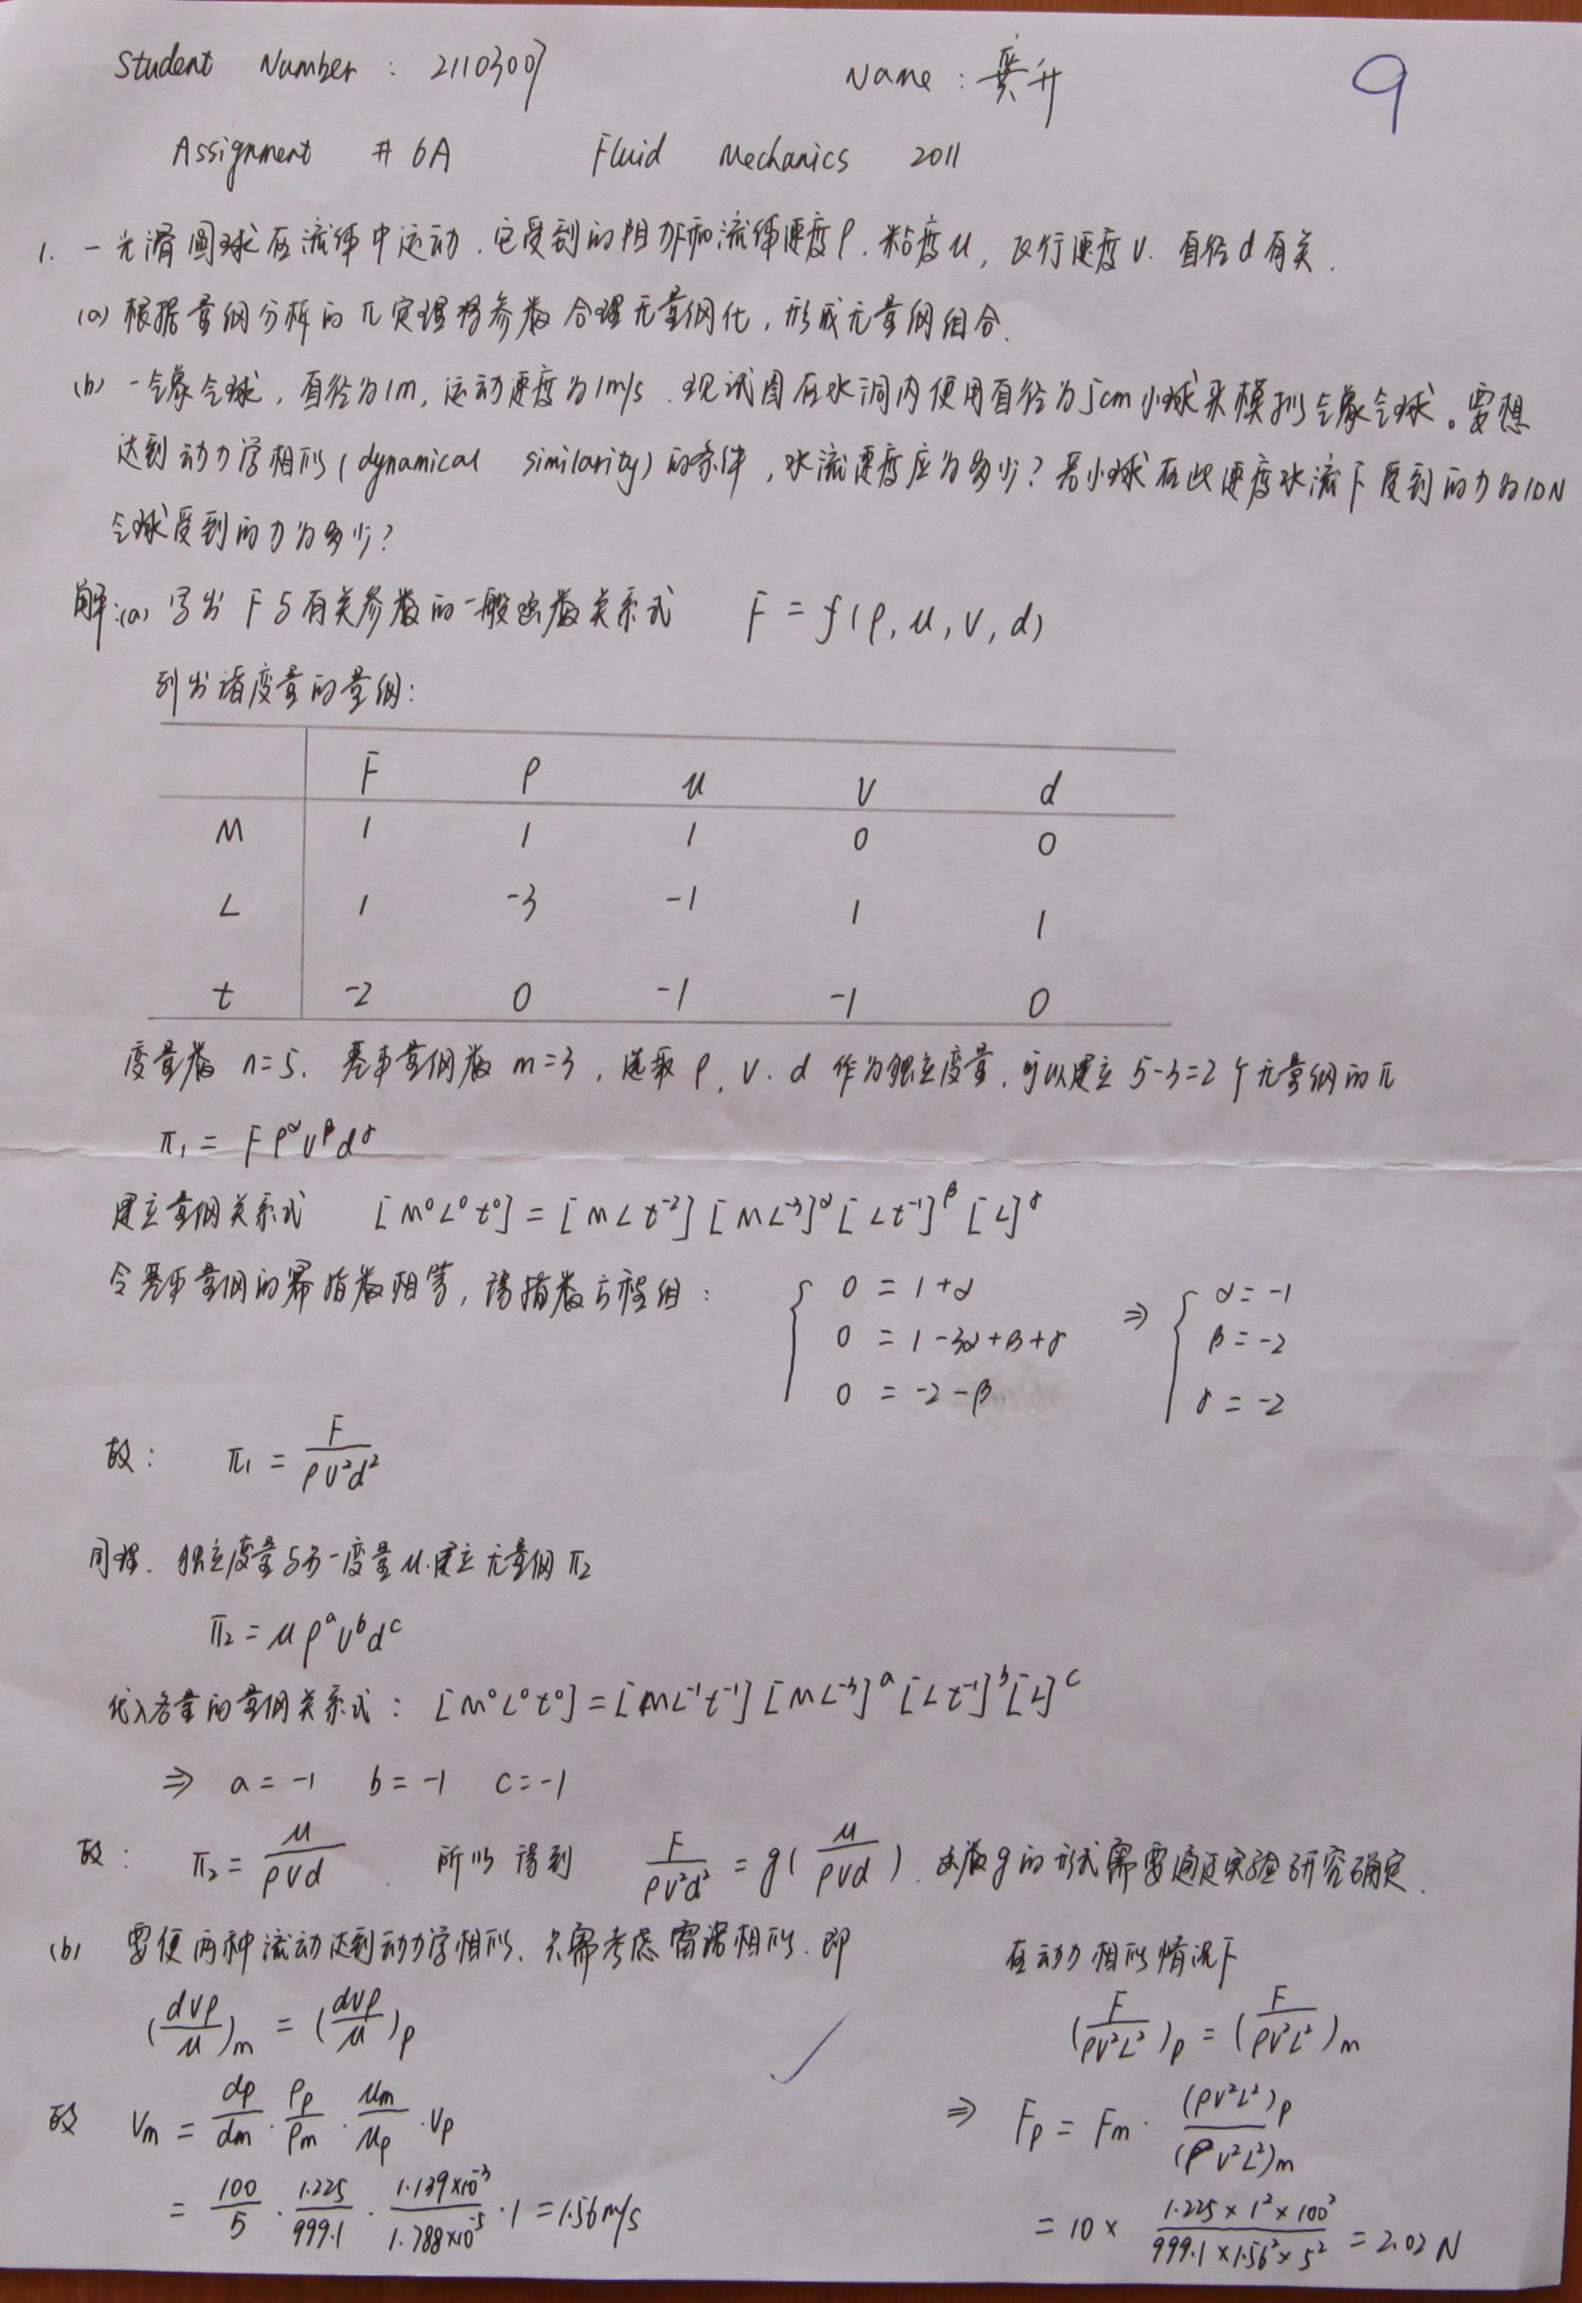 Student Number : 2110307 Name : 龚升 9
Assignment # 6A Fluid Mechanics 2011
1. 一光滑圆球在流体中运动.它受到的阻力F和流体速度ρ.粘度μ,飞行速度V.直径d有关.
(a) 根据量纲分析的π定理将参数合理无量纲化,形成无量纲组合.
(b) 一气象气球,直径为1m,运动速度为1m/s.现试图在水洞内使用直径为5cm小球来模拟气象气球。要想
达到动力学相似(dynamical similarity)的条件,水流速度应为多少?若小球在此速度水流下受到的力为10N
气球受到的力为多少?
解:(a) 写出F与有关参数的一般函数关系式 F = f(ρ, μ, V, d)
列出诸变量的量纲:
F ρ μ V d
M 1 1 1 0 0
L 1 -3 -1 1 1
t -2 0 -1 -1 0
变量数 n=5. 基本量纲数 m=3, 选取 ρ. V. d 作为独立变量.可以建立 5-3=2 个无量纲的π
π₁ = F ρ^α V^β d^γ
建立量纲关系式 [M⁰L⁰t⁰] = [MLt⁻²] [ML⁻³]^α [Lt⁻¹]^β [L]^γ
令基本量纲的幂指数相等,得指数方程组: { 0 = 1+α ⇒ { α = -1
0 = 1-3α+β+γ β = -2
0 = -2-β γ = -2
故: π₁ = F/(ρV²d²)
同理. 独立变量与另一变量μ.建立无量纲π₂
π₂ = μ ρ^a V^b d^c
代入各量的量纲关系式: [M⁰L⁰t⁰] = [ML⁻¹t⁻¹] [ML⁻³]^a [Lt⁻¹]^b [L]^c
⇒ a = -1 b = -1 c = -1
故: π₂ = μ/(ρVd) . 所以得到 F/(ρV²d²) = g(μ/(ρVd)) . 函数g的形式需要通过实验研究确定.
(b) 要使两种流动达到动力学相似.只需考虑雷诺相似.即
(dVρ/μ)m = (dVρ/μ)p
故 Vm = dp/dm · ρp/ρm · μm/μp · Vp
= 100/5 · 1.225/999.1 · 1.139×10⁻³/1.788×10⁻⁵ · 1 = 1.56 m/s
在动力相似情况下
(F/(ρV²L²))p = (F/(ρV²L²))m
⇒ Fp = Fm · (ρV²L²)p/(ρV²L²)m
= 10 × 1.225×1²×100²/999.1×1.56²×5² = 2.02 N